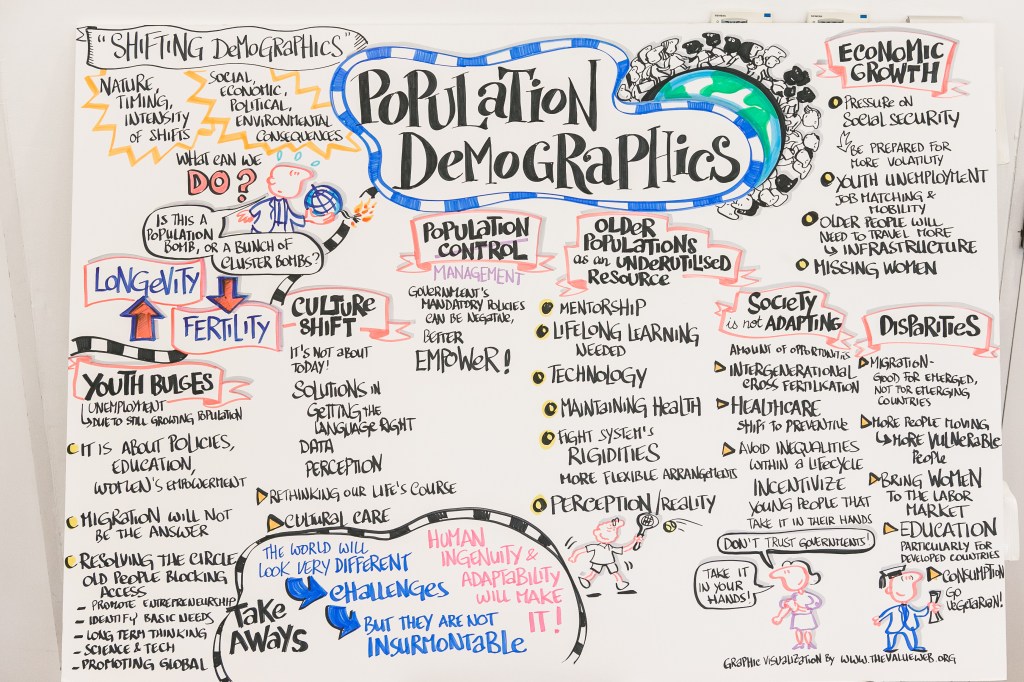 "SHIFTING DEMOGRAPHICS"
NATURE,
TIMING,
INTENSITY
OF SHIFTS
SOCIAL,
ECONOMIC,
POLITICAL,
ENVIRONMENTAL
CONSEQUENCES
WHAT CAN WE
DO?
IS THIS A
POPULATION
BOMB, OR A BUNCH OF
CLUSTER BOMBS?
POPULATION
DEMOGRAPHICS
LONGEVITY
FERTILITY
YOUTH BULGES
UNEMPLOYMENT
DUE TO STILL GROWING POPULATION
IT IS ABOUT POLICIES,
EDUCATION,
WOMEN'S EMPOWERMENT
MIGRATION WILL NOT
BE THE ANSWER
RESOLVING THE CIRCLE
OLD PEOPLE BLOCKING
ACCESS
- PROMOTE ENTREPRENEURSHIP
- IDENTIFY BASIC NEEDS
- LONG TERM THINKING
- SCIENCE & TECH
- PROMOTING GLOBAL
CULTURE
SHIFT
IT'S NOT ABOUT
TODAY!
SOLUTIONS IN
GETTING THE
LANGUAGE RIGHT
DATA
PERCEPTION
RETHINKING OUR LIFE'S COURSE
CULTURAL CARE
POPULATION
CONTROL
MANAGEMENT
GOVERNMENT'S
MANDATORY POLICIES
CAN BE NEGATIVE,
BETTER
EMPOWER!
OLDER
POPULATIONS
as an UNDERUTILISED
RESOURCE
MENTORSHIP
LIFELONG LEARNING
NEEDED
TECHNOLOGY
MAINTAINING HEALTH
FIGHT SYSTEM'S
RIGIDITIES
MORE FLEXIBLE ARRANGEMENTS
PERCEPTION/REALITY
ECONOMIC
GROWTH
PRESSURE ON
SOCIAL SECURITY
BE PREPARED FOR
MORE VOLATILITY
YOUTH UNEMPLOYMENT
JOB MATCHING &
MOBILITY
OLDER PEOPLE WILL
NEED TO TRAVEL MORE
INFRASTRUCTURE
MISSING WOMEN
SOCIETY
is not ADAPTING
AMOUNT OF OPPORTUNITIES
INTERGENERATIONAL
CROSS FERTILISATION
HEALTHCARE
SHIFT TO PREVENTIVE
AVOID INEQUALITIES
WITHIN A LIFECYCLE
INCENTIVIZE
YOUNG PEOPLE THAT
TAKE IT IN THEIR HANDS
DISPARITIES
MIGRATION-
GOOD FOR EMERGED,
NOT FOR EMERGING
COUNTRIES
MORE PEOPLE MOVING
MORE VULNERABLE
PEOPLE
BRING WOMEN
TO THE LABOR
MARKET
EDUCATION
PARTICULARLY FOR
DEVELOPED COUNTRIES
CONSUMPTION
GO
VEGETARIAN!
DON'T TRUST GOVERNMENTS!
TAKE IT
IN YOUR
HANDS!
TAKE
AWAYS
THE WORLD WILL
LOOK VERY DIFFERENT
CHALLENGES
BUT THEY ARE NOT
INSURMONTABLE
HUMAN
INGENUITY &
ADAPTABILITY
WILL MAKE
IT!
GRAPHIC VISUALIZATION BY WWW.THEVALUEWEB.ORG